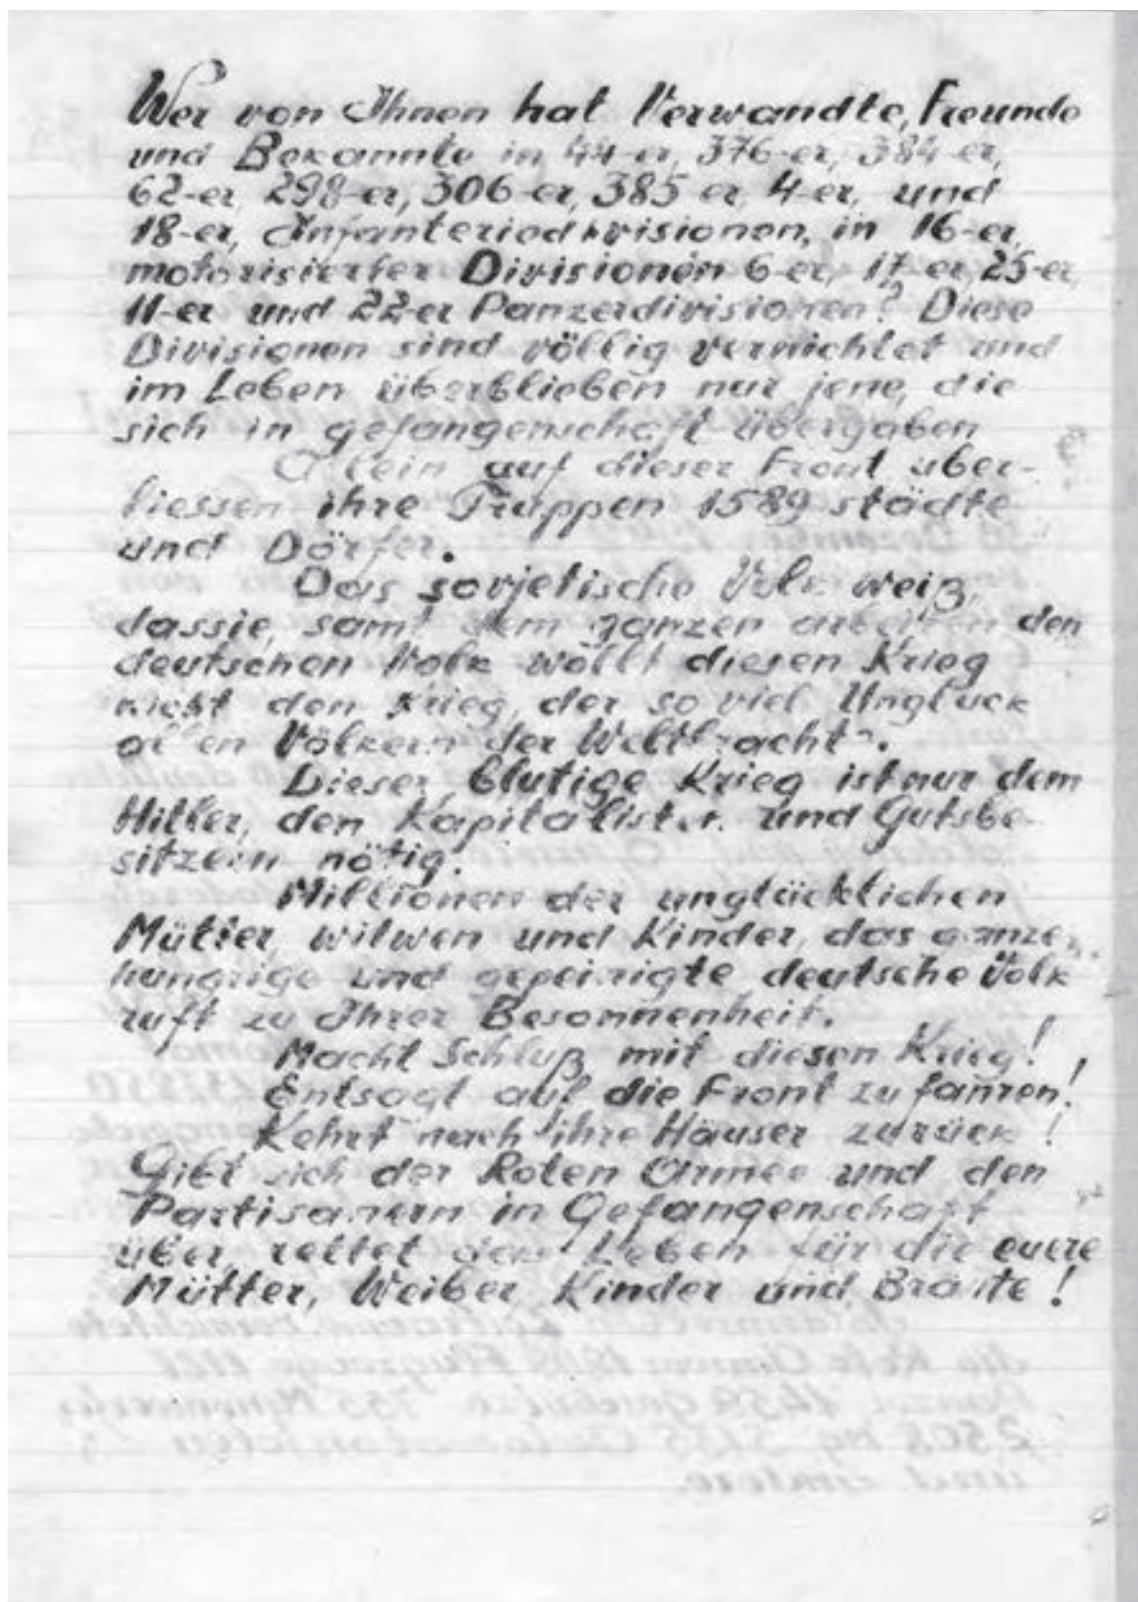 Wer von Ihnen hat Verwandte, Freunde
und Bekannte in 44-er, 376-er, 384-er,
62-er, 298-er, 306-er, 385 er, 4-er, und
18-er, Infanteriedivisionen, in 16-er,
motorisierter Divisionen 6-er, 17-er, 25-er,
11-er und 22-er Panzerdivisionen? Diese
Divisionen sind völlig vernichtet und
im Leben überblieben nur jene, die
sich in gefangenschaft übergaben
Allein auf dieser Front über-
liessen ihre Truppen 1589 städte
und Dörfer.
Das sovjetische Volk weiß,
dassie, samt dem ganzen den
deutschen Volk wollt diesen Krieg
nicht den Krieg, der so viel Unglück
allen Völkern der Welt brachte.
Dieser blutige Krieg ist nur dem
Hitler, den Kapitalisten und Gutsbe-
sitzern nötig.
Millionen der unglücklichen
Mütter, witwen und Kinder, das ganze
hungrige und gepeinigte deutsche Volk
ruft zu Ihrer Besonnenheit.
Macht Schluß mit diesen Krieg!
Entsagt auf die Front zu fahren!
Kehrt nach ihre Häuser zurück!
Gibt sich der Roten Armee und den
Partisanern in Gefangenschaft
über, rettet das Leben für die euere
Mütter, Weiber Kinder und Bräute!